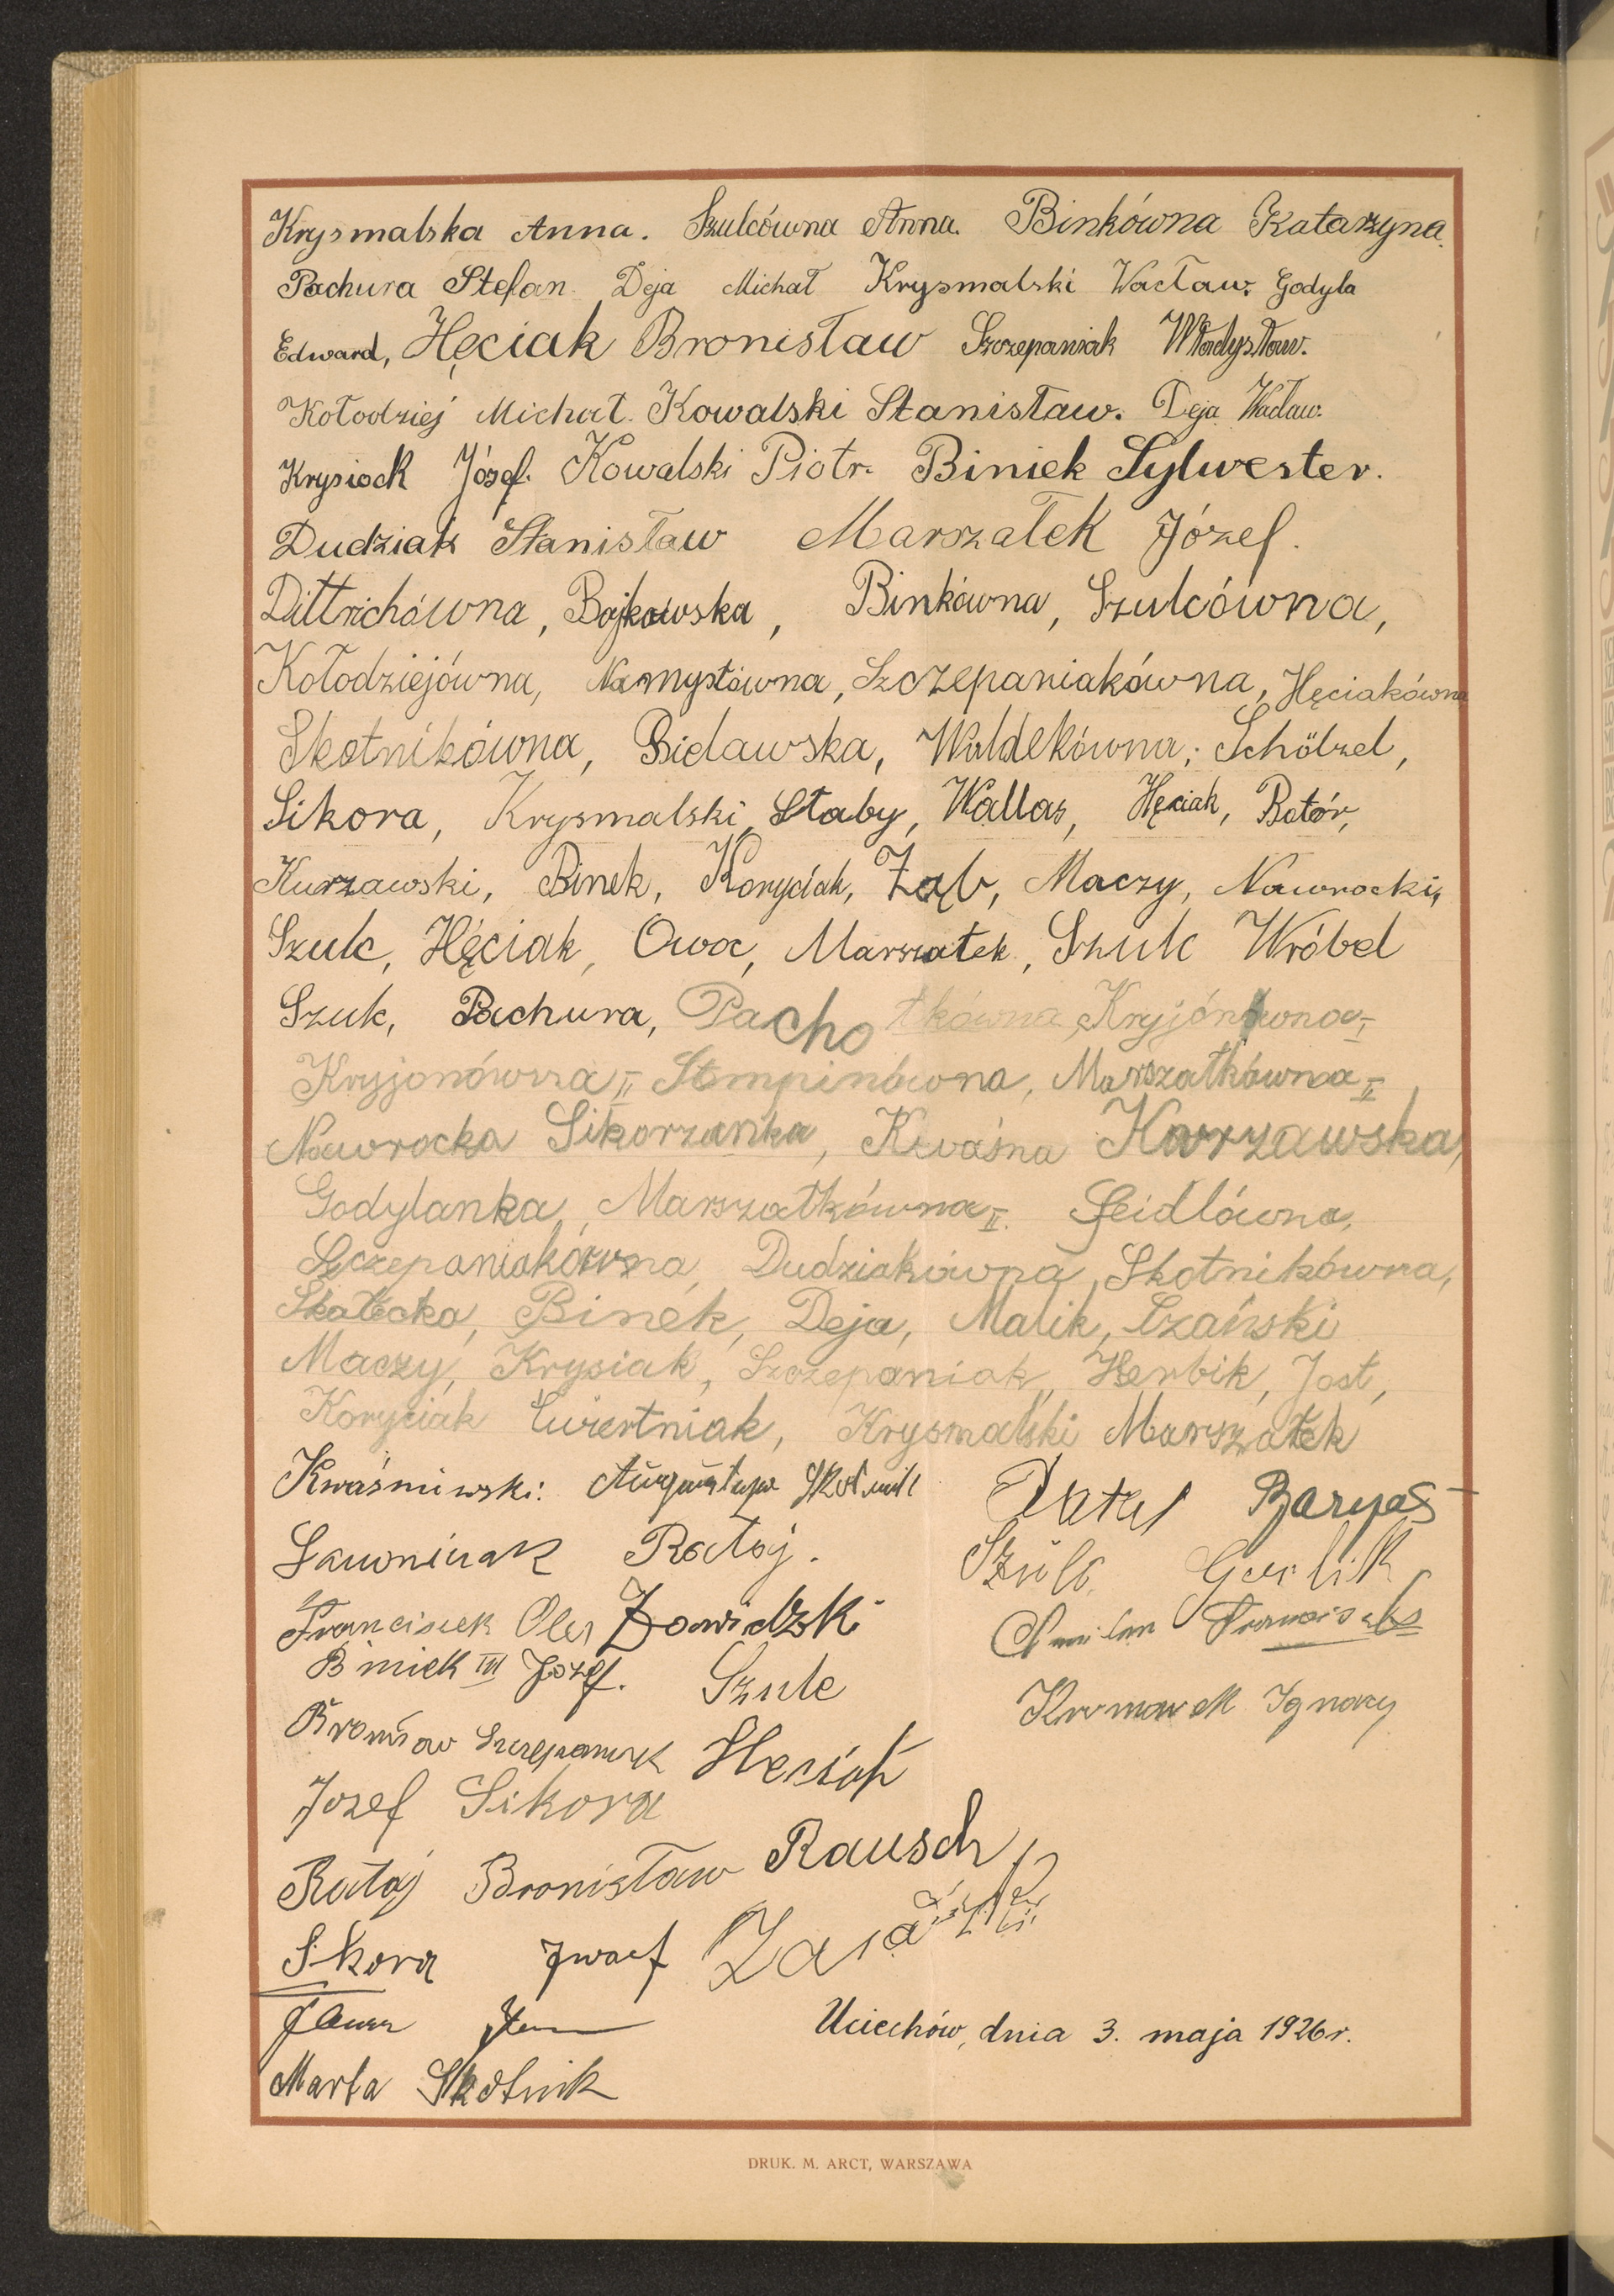 Krysmalska Anna. Szulcówna Anna. Binkówna Katarzyna.
Pachura Stefan Deja Michał Krysmalski Wacław. Godyla
Edward, Hęciak Bronisław Szczepaniak Władysław.
Kołodziej Michał. Kowalski Stanisław. Deja Wacław.
Krysiack Józef. Kowalski Piotr. Biniek Sylwester.
Dudziak Stanisław Marszałek Józef.
Dittrichówna, Bojkowska, Binkówna, Szulcówna,
Kołodziejówna, Namysłówna, Szczepaniakówna, Hęciakówna
Skotnikówna, Bielawska, Waldekówna, Schölzel,
Sikora, Krysmalski, Słaby, Wallas, Hęciak, Botór,
Kurzawski, Binek, Koryciak, Ząb, Maczy, Nawrocki,
Szulc, Hęciak, Owoc, Marszałek, Szulc Wróbel
Szulc, Pachura, Pachołkówna, Kryjonówna I
Kryjonówna II Stempinówna, Marszałkówna I,
Nawrocka Sikorzanka, Kwaśna Karzawska,
Godylanka, Marszałkówna II. Seidlówna,
Szczepaniakówna, Dudziakówna, Skotnikówna,
Skałecka, Binek, Deja, Malik, Szański
Maczy, Krysiak, Szczepaniak, Herbik, Jost,
Koryciak Ćwiertniak, Krysmalski Marszałek
Kwaśniwski. Augustyn Skotnik
Ławniczak Rataj.
Franciszek Oleś Zawidzki
Biniek III Józef. Szulc
Bronisław Szczepaniak Hęciak
Jozef Sikora
Rataj Bronisław Rausch
Sikora Jozef
Marta Skotnik
Baryas
Szulc Garlik
Franciszek
Ignacy
Uciechów, dnia 3. maja 1926 r.
DRUK. M. ARCT, WARSZAWA